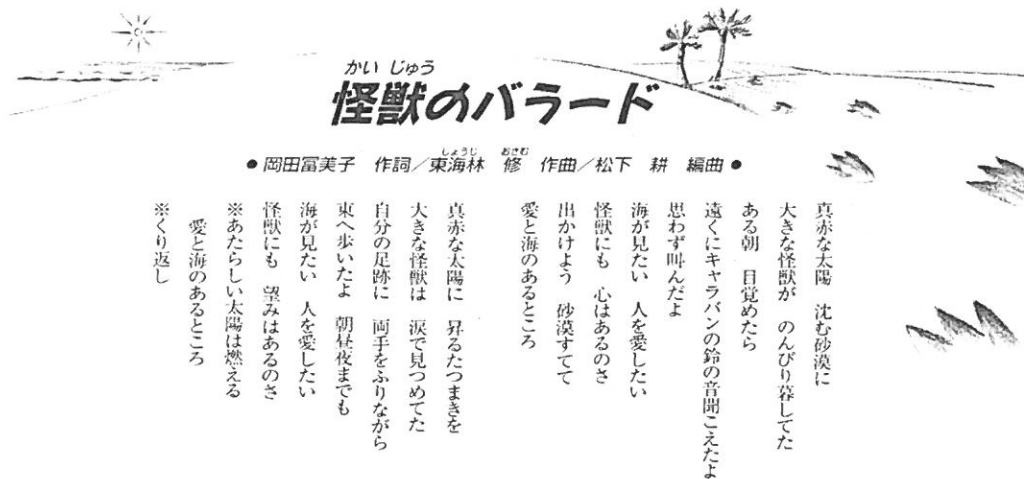 かい じゅう
怪獣のバラード
しょうじ おさむ
●岡田冨美子 作詞/東海林 修 作曲/松下 耕 編曲●
真赤な太陽 沈む砂漠に
大きな怪獣が のんびり暮してた
ある朝 目覚めたら
遠くにキャラバンの鈴の音聞こえたよ
思わず叫んだよ
海が見たい 人を愛したい
怪獣にも 心はあるのさ
出かけよう 砂漠すてて
愛と海のあるところ
真赤な太陽に 昇るたつまきを
大きな怪獣は 涙で見つめてた
自分の足跡に 両手をふりながら
東へ歩いたよ 朝昼夜までも
海が見たい 人を愛したい
怪獣にも 望みはあるのさ
※あたらしい太陽は燃える
愛と海のあるところ
※くり返し